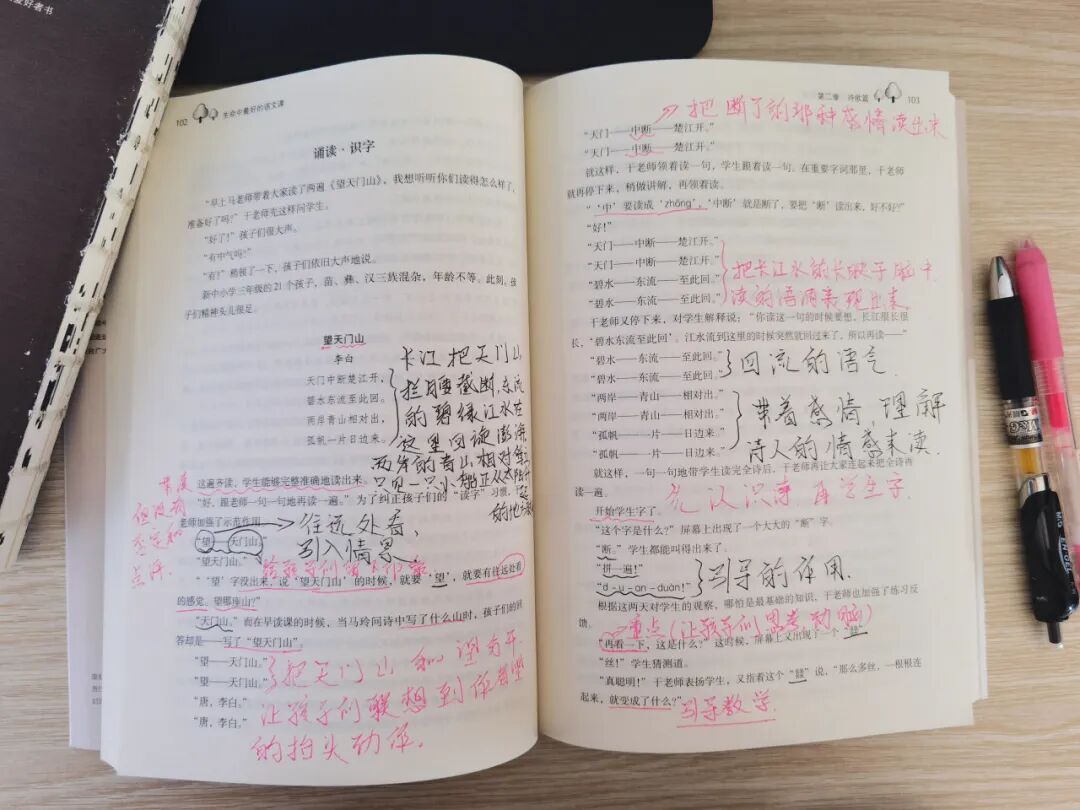 爱好者书
102 生命中最好的语文课
诵读·识字
“早上马老师带着大家读了两遍《望天门山》，我想听听你们读得怎么样了，
准备好了吗？”干老师先这样问学生。
“好了！”孩子们很大声。
“有中气吗？”
“有！”稍顿了一下，孩子们依旧大声地说。
新中小学三年级的21个孩子，苗、彝、汉三族混杂，年龄不等。此刻，孩
子们精神头儿很足。
望天门山
李白
天门中断楚江开，
碧水东流至此回。
两岸青山相对出，
孤帆一片日边来。
长江把天门山
拦腰截断，东流
的碧绿江水在
这里回旋澎湃
两岸的青山相对
只见一只小船正从太阳升
的地
这遍齐读，学生能够完整准确地读出来。
“好，跟老师一句一句地再读一遍。”为了纠正孩子们的“读字”习惯，干
老师加强了示范作用。
但没有
点评.
“望——天门山。”
往远处看，
引入情景
“望天门山。”
“‘望’字没出来，说‘望天门山’的时候，就要‘望’，就要有往远处看
的感觉。望那座山？”
“天门山。”而在早读课的时候，当马玲问诗中写了什么山时，孩子们的回
答却是——写了“望天门山”。
“望——天门山。”
“望——天门山。”
“唐，李白。”
“唐，李白。”
把天门山和望分开
让孩子们联想到作者望
的抬头动作.
第二章 诗歌篇 103
把断了的那种感情读出来
“天门——中断——楚江开。”
“天门——中断——楚江开。”
就这样，干老师领着读一句，学生跟着读一句。在重要字词那里，干老师
就再停下来，稍做讲解，再领着读。
“‘中’要读成‘zhōng’，‘中断’就是断了，要把‘断’读出来，好不好？”
“好！”
“天门——中断——楚江开。”
“天门——中断——楚江开。”
“碧水——东流——至此回。”
“碧水——东流——至此回。”
把长江水的长映于脑中
读的语调表现出来
干老师又停下来，对学生解释说：“你读这一句的时候要想，长江很长很
长，‘碧水东流至此回’。江水流到这里的时候突然就回过来了，所以再读——”
“碧水——东流——至此回。”
“碧水——东流——至此回。”
回流的语气.
“两岸——青山——相对出。”
“两岸——青山——相对出。”
“孤帆——一片——日边来。”
“孤帆——一片——日边来。”
带着感情，理解
诗人的情感来读
就这样，一句一句地带学生读完全诗后，干老师再让大家连起来把全诗再
读一遍。
先认识诗再学生字.
开始学生字了。
“这个字是什么？”屏幕上出现了一个大大的“断”字。
“断。”学生都能叫得出来了。
“拼一遍！”
“d-u-an-duàn！”
引导的作用.
根据这两天对学生的观察，哪怕是最基础的知识，干老师也加强了练习反
馈。
重点(让孩子们思考动脑)
“再看一下，这是什么？”这时候，屏幕上又出现了一个
“丝！”学生猜测道。
“真聪明！”干老师表扬学生，又指着这个
说，“那么多丝，一根根连
起来，就变成了什么？”
引导教学.